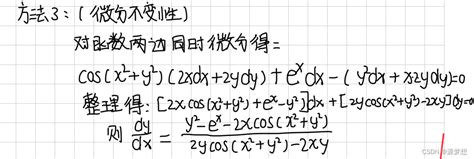 方法3:(微分不变性)
对函数两边同时微分得:
cos(x²+y²)(2xdx+2ydy)+eˣdx-(y²dx+x·2ydy)=0
整理得:[2xcos(x²+y²)+eˣ-y²]dx+[2ycos(x²+y²)-2xy]dy=0
则 dy/dx = (y²-eˣ-2xcos(x²+y²))/(2ycos(x²+y²)-2xy)
CSDN